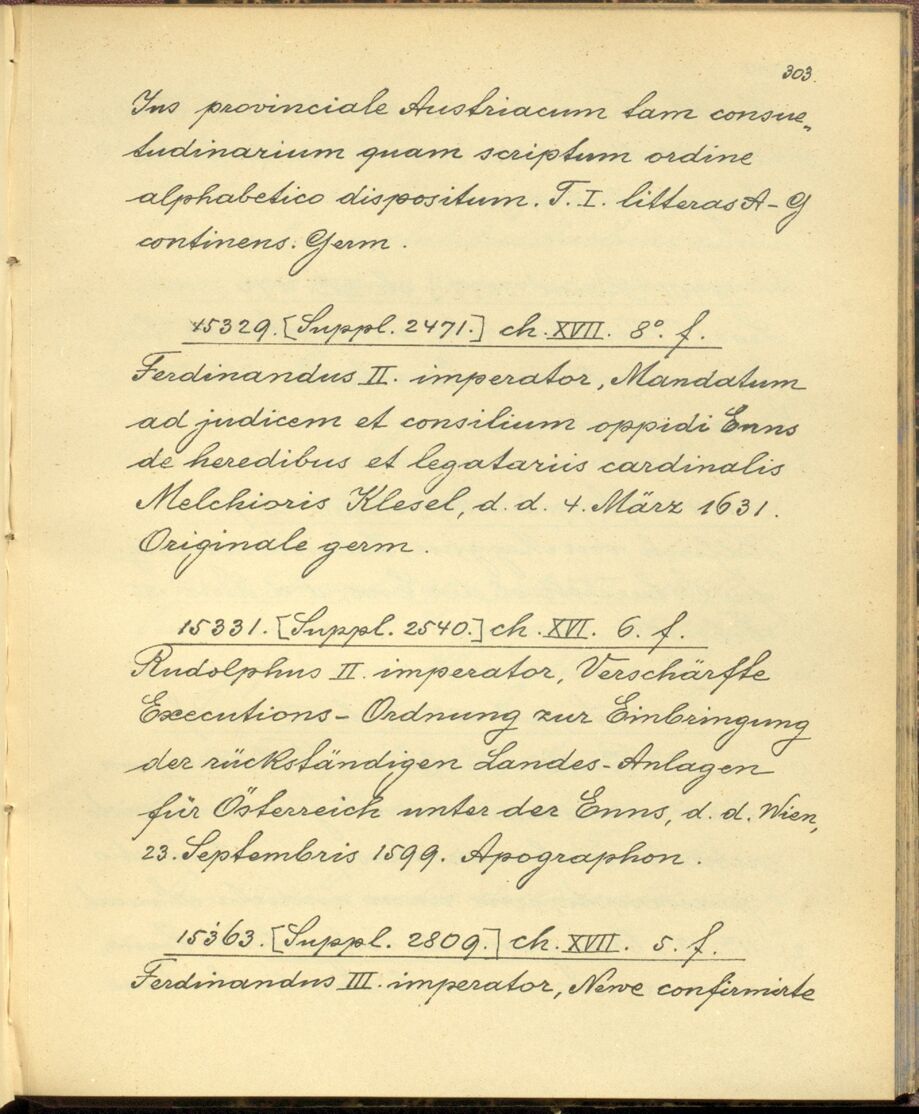 303.
Jus provinciale Austriacum tam consue„
tudinarium quam scriptum ordine
alphabetico dispositum. T. I. litteras A-G
continens. Germ.
15329. [Suppl. 2471.] ch. XVII. 8°. f.
Ferdinandus II. imperator, Mandatum
ad judicem et consilium oppidi Enns
de heredibus et legatariis cardinalis
Melchioris Klesel, d. d. 4. März 1631.
Originale germ.
15331. [Suppl. 2540.] ch. XVI. 6. f.
Rudolphus II. imperator, Verschärfte
Executions-Ordnung zur Einbringung
der rückständigen Landes-Anlagen
für Österreich unter der Enns, d. d. Wien,
23. Septembris 1599. Apographon.
15363. [Suppl. 2809.] ch. XVII. 5. f.
Ferdinandus III. imperator, Newe confirmirte